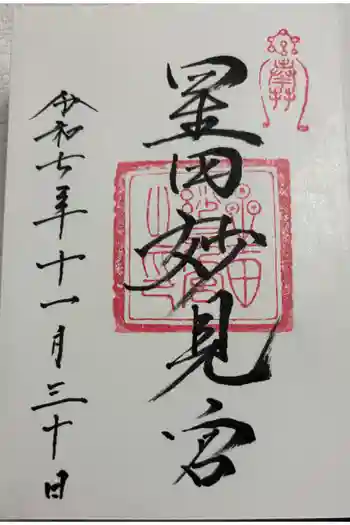 星田妙見宮
令和七年十一月三十日